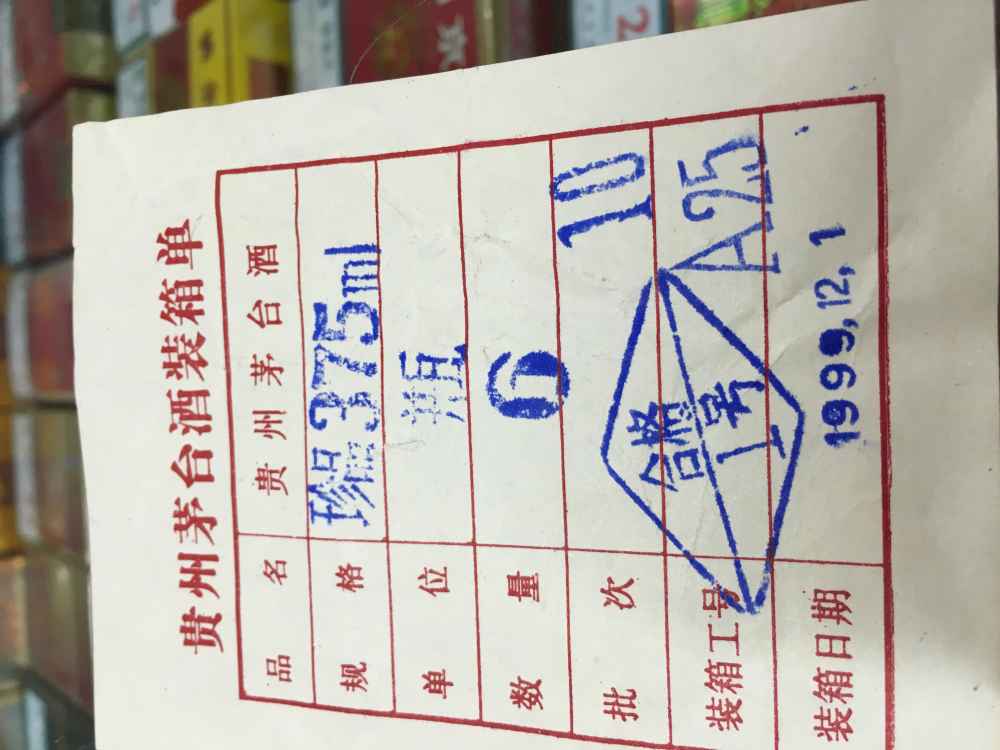 贵州茅台酒装箱单
品名 贵州茅台酒
规格 珍品375ml
单位 瓶
数量 6
批次 10
装箱工号 A25
合格
1号
装箱日期 1999,12,1